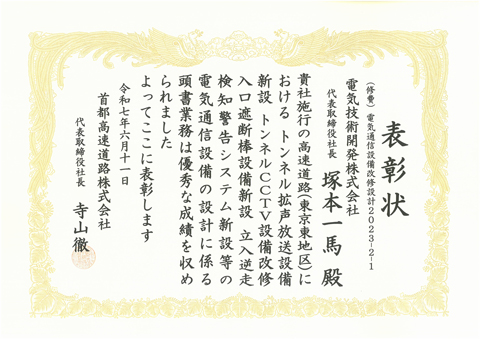 表彰状
(修費)電気通信設備改修設計2023-2-1
電気技術開発株式会社
代表取締役社長 塚本一馬 殿
貴社施行の高速道路(東京東地区)に
おける トンネル拡声放送設備
新設 トンネルCCTV設備改修
入口遮断棒設備新設 立入逆走
検知警告システム新設等の
電気通信設備の設計に係る
頭書業務は優秀な成績を収め
られました
よってここに表彰します
令和七年六月十一日
首都高速道路株式会社
代表取締役社長 寺山徹